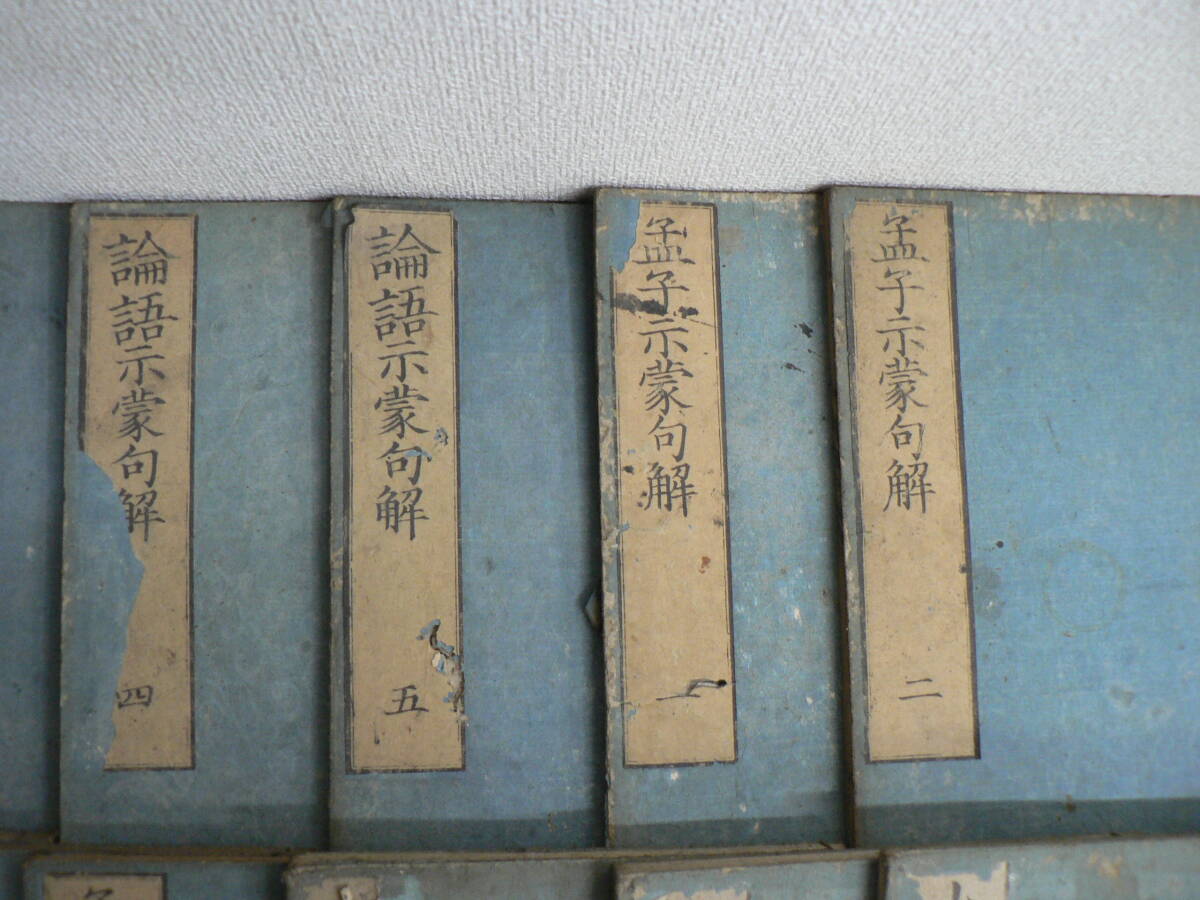 論語示蒙句解 四
論語示蒙句解 五
孟子示蒙句解 一
孟子示蒙句解 二